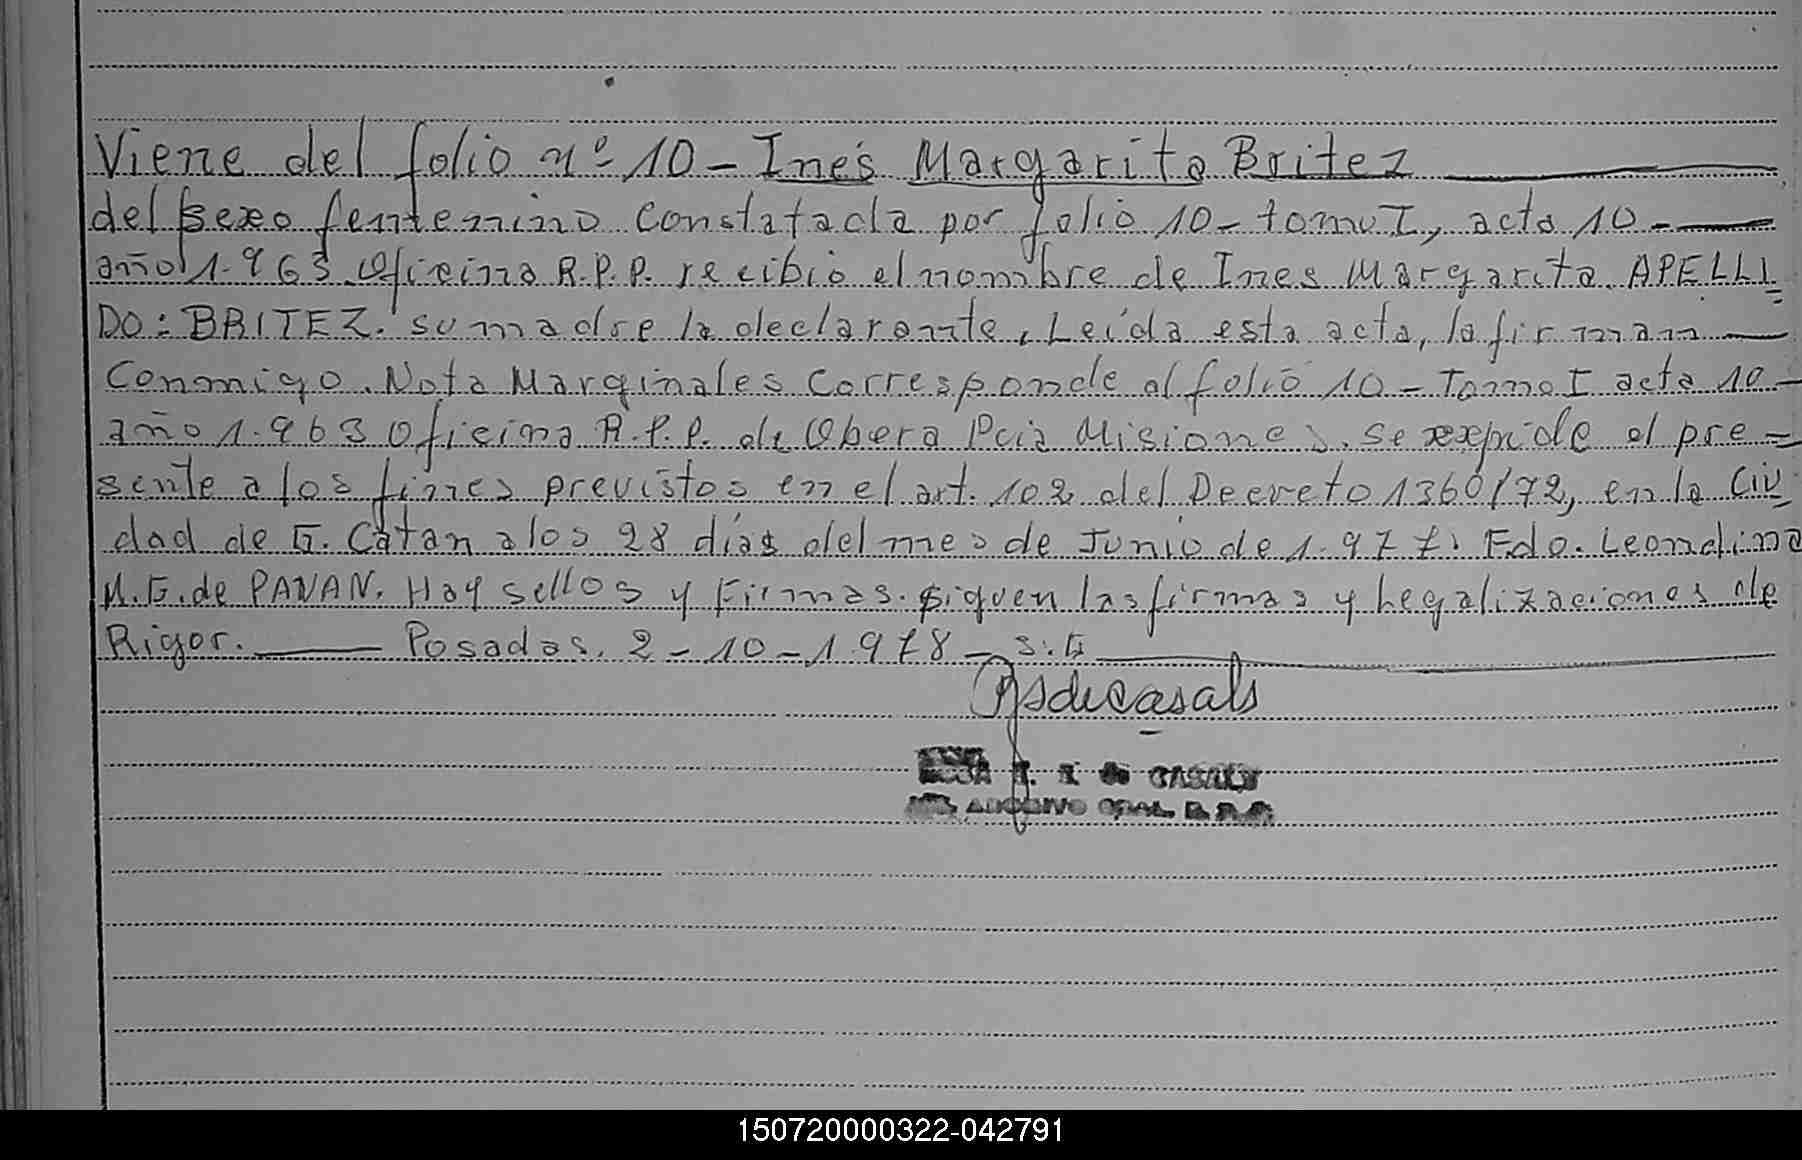 Viene del folio nº 10 - Inés Margarita Britez
del sexo femtenino constatada por folio 10 - tomo I, acta 10 -
año 1.963 Oficina R.P.P. recibió el nombre de Ines Margarita. APELLI
DO: BRITEZ. su madre la declarante, Leída esta acta, la firman
Conmigo. Nota Marginales Corresponde al folio 10 - Tomo I acta 10 -
año 1.963 Oficina R.P.P. de Obera Pcia Misiones. se expide el pre =
sente a los fines previstos en el art. 102 del Decreto 1360/72, en la Ciu
dad de G. Catan a los 28 días del mes de Junio de 1.977. Fdo. Leondina
M.G. de PANAN. Hay sellos y Firmas. siguen las firmas y Legalizaciones de
Rigor. Posadas. 2 - 10 - 1.978 - S.G
de CASALS
ARCHIVO GRAL. R.P.P.
150720000322-042791